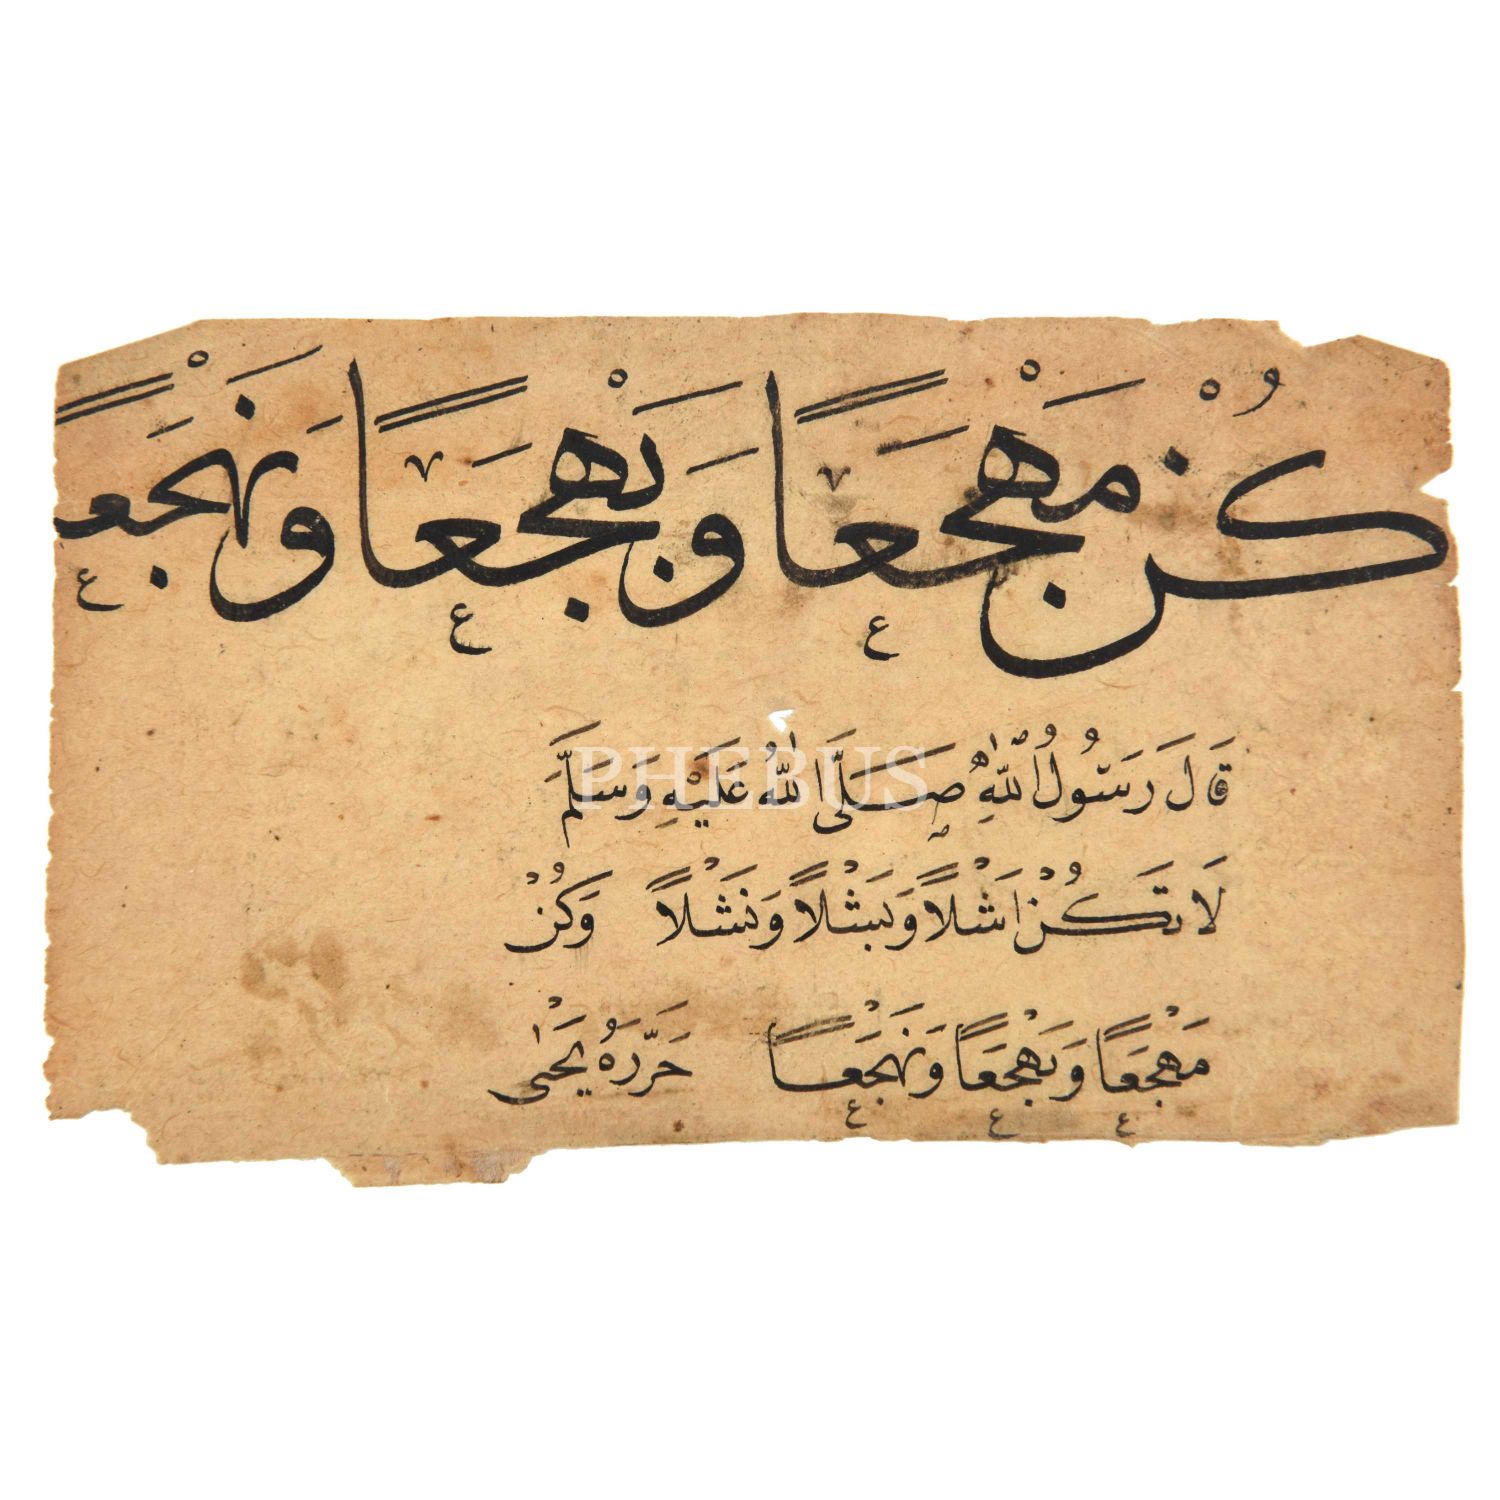 كُنْ مَهْجَعًا وَبَهْجَعًا وَنَهْجَعًا
قَالَ رَسُولُ اللّٰهِ صَلَّى اللّٰهُ عَلَيْهِ وَسَلَّمَ
لَا تَكُنْ اَشْلًا وَبَشْلًا وَنَشْلًا وَكُنْ
مَهْجَعًا وَبَهْجَعًا وَنَهْجَعًا حَرَّرَهُ يَحْيٰى
PHEBUS